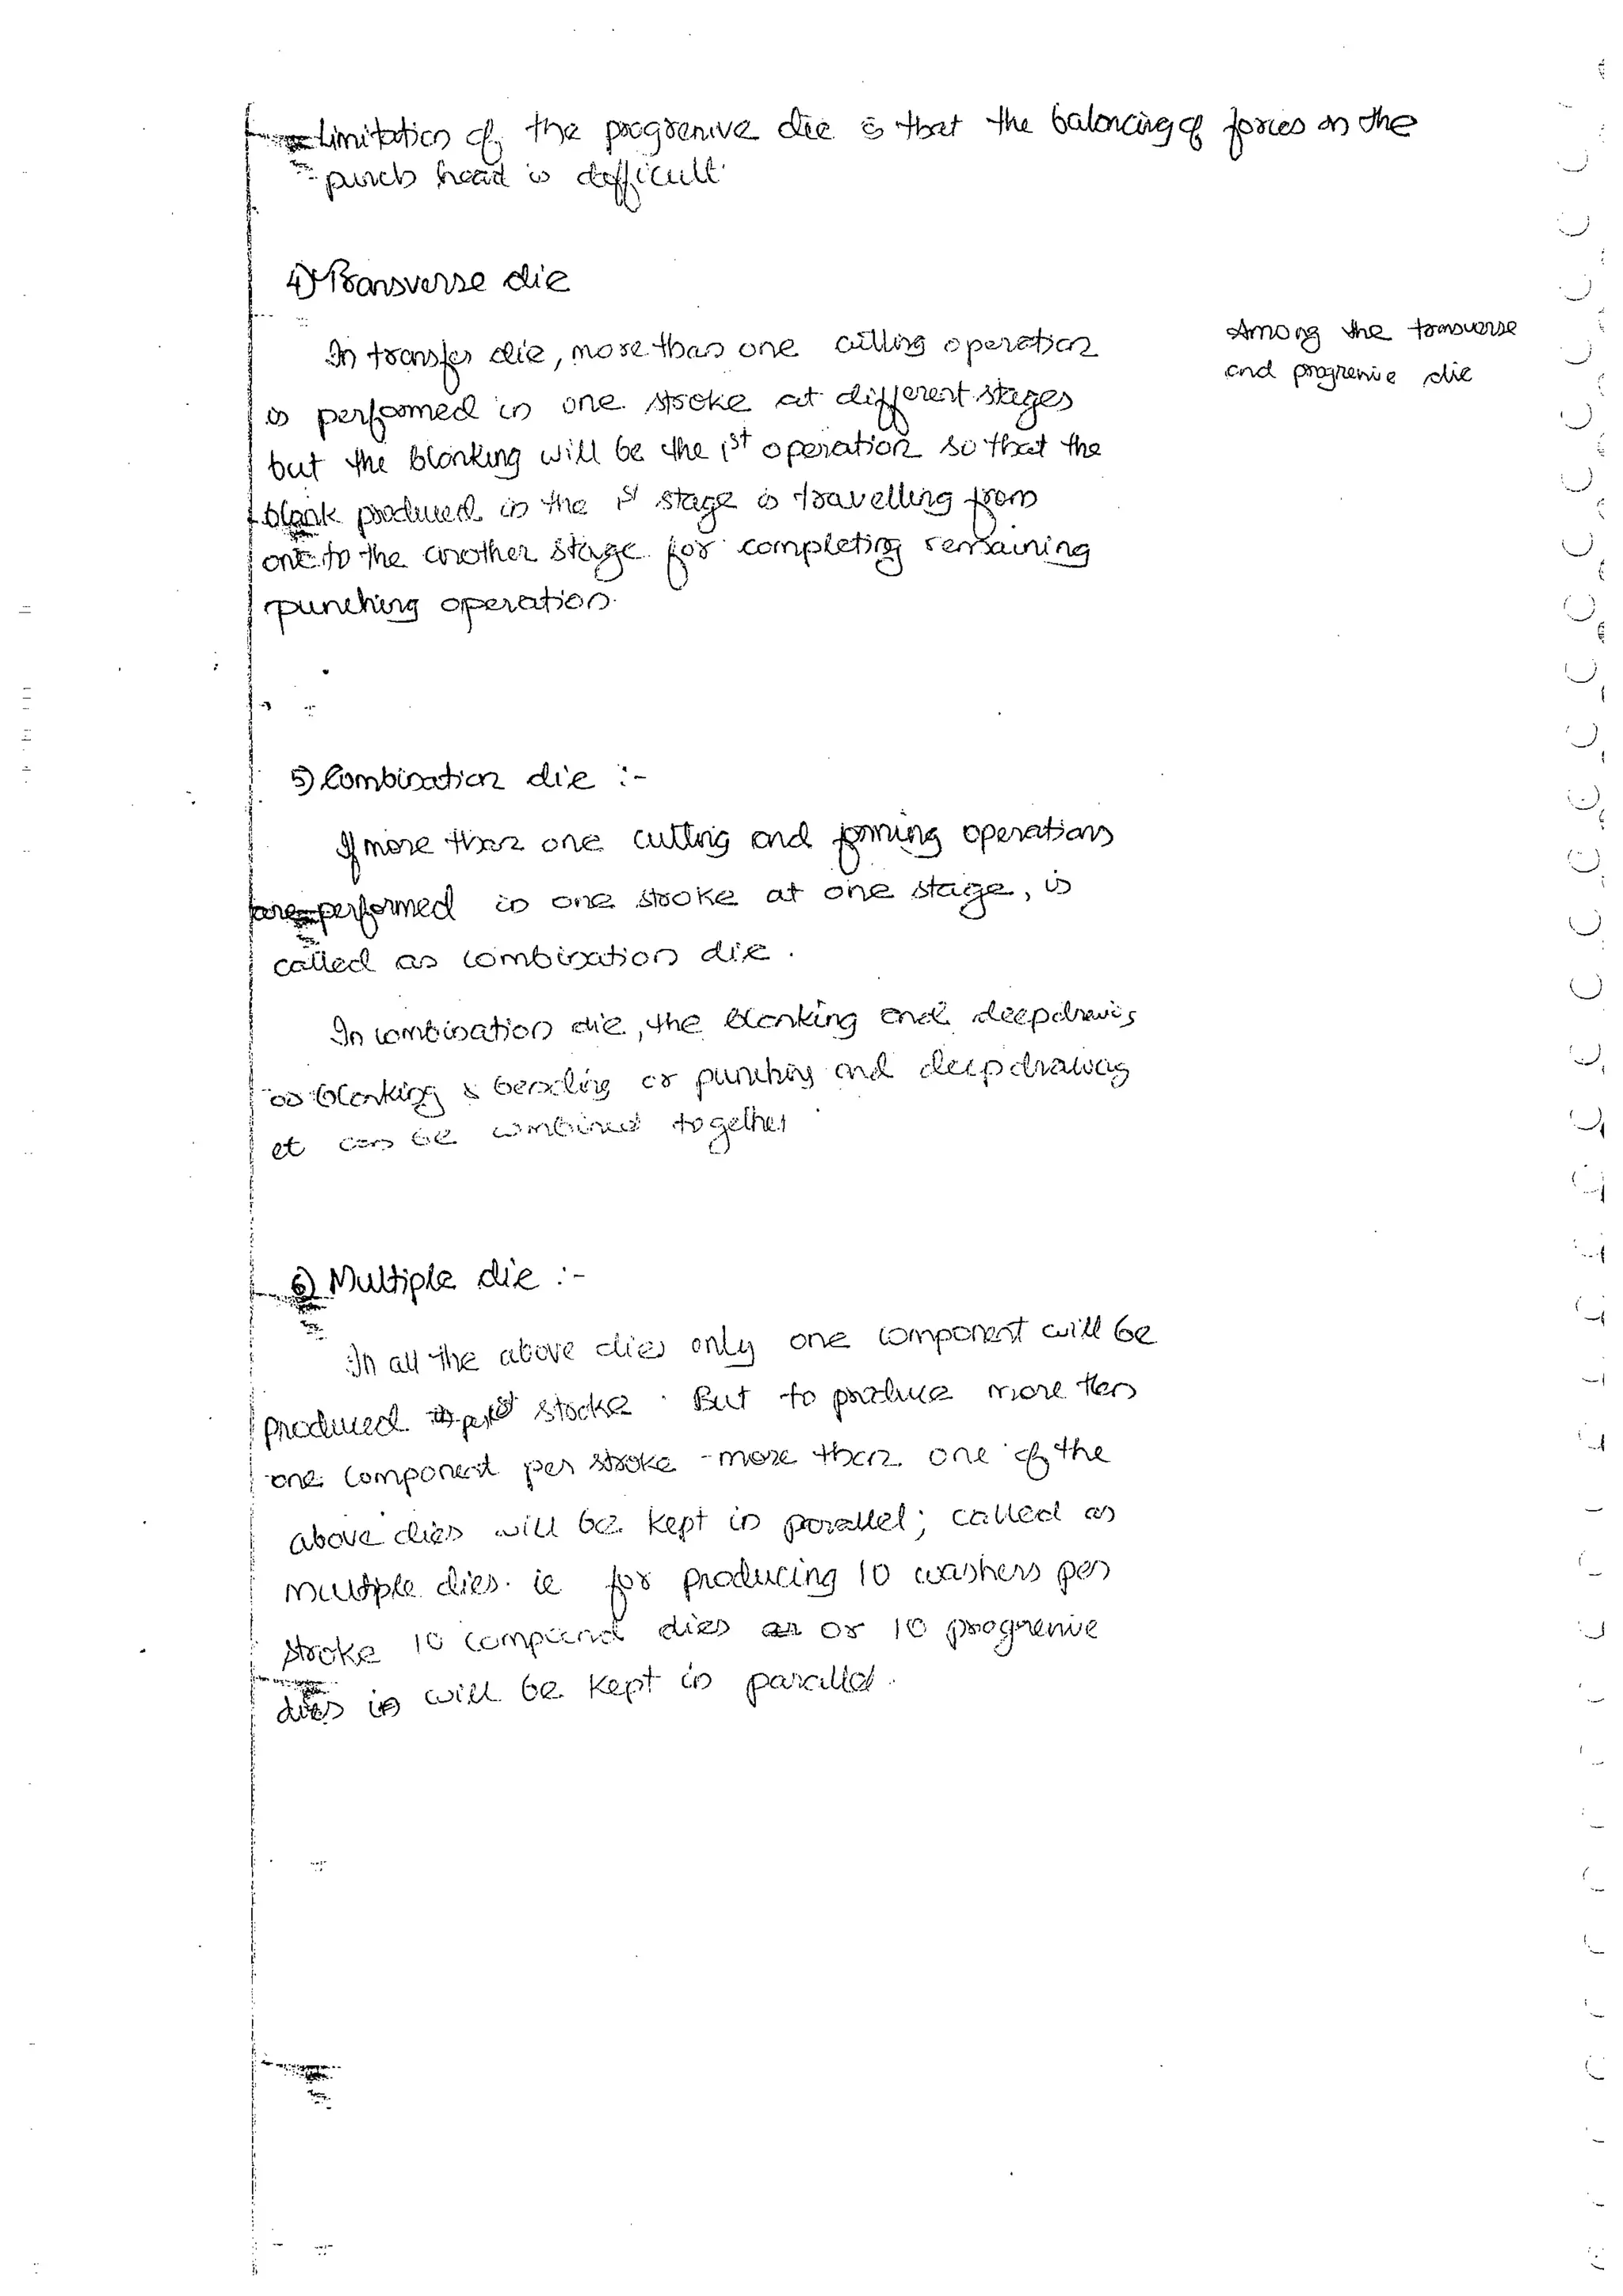 Limitation of the progressive die is that the balancing of forces on the
punch head is difficult.
4) Transverse die
In transfer die, more than one cutting operation
is performed in one stroke at different stages
but the blanking will be the 1st operation so that the
blank produced in the 1st stage is travelling from
one to the another stage for completing remaining
punching operation.
Among the transverse
and progressive die
5) Combination die :-
If more than one cutting and forming operations
are performed in one stroke at one stage, is
called as combination die.
In combination die, the blanking and deepdrawing
or blanking & bending or punching and deepdrawing
et can be combined together
6) Multiple die :-
In all the above dies only one component will be
produced per stocke. But to produce more than
one component per stroke - more than one of the
above dies will be kept in parallel; called as
multiple dies. ie for producing 10 washers per
stroke 10 compound dies or 10 progressive
dies will be kept in parallel.